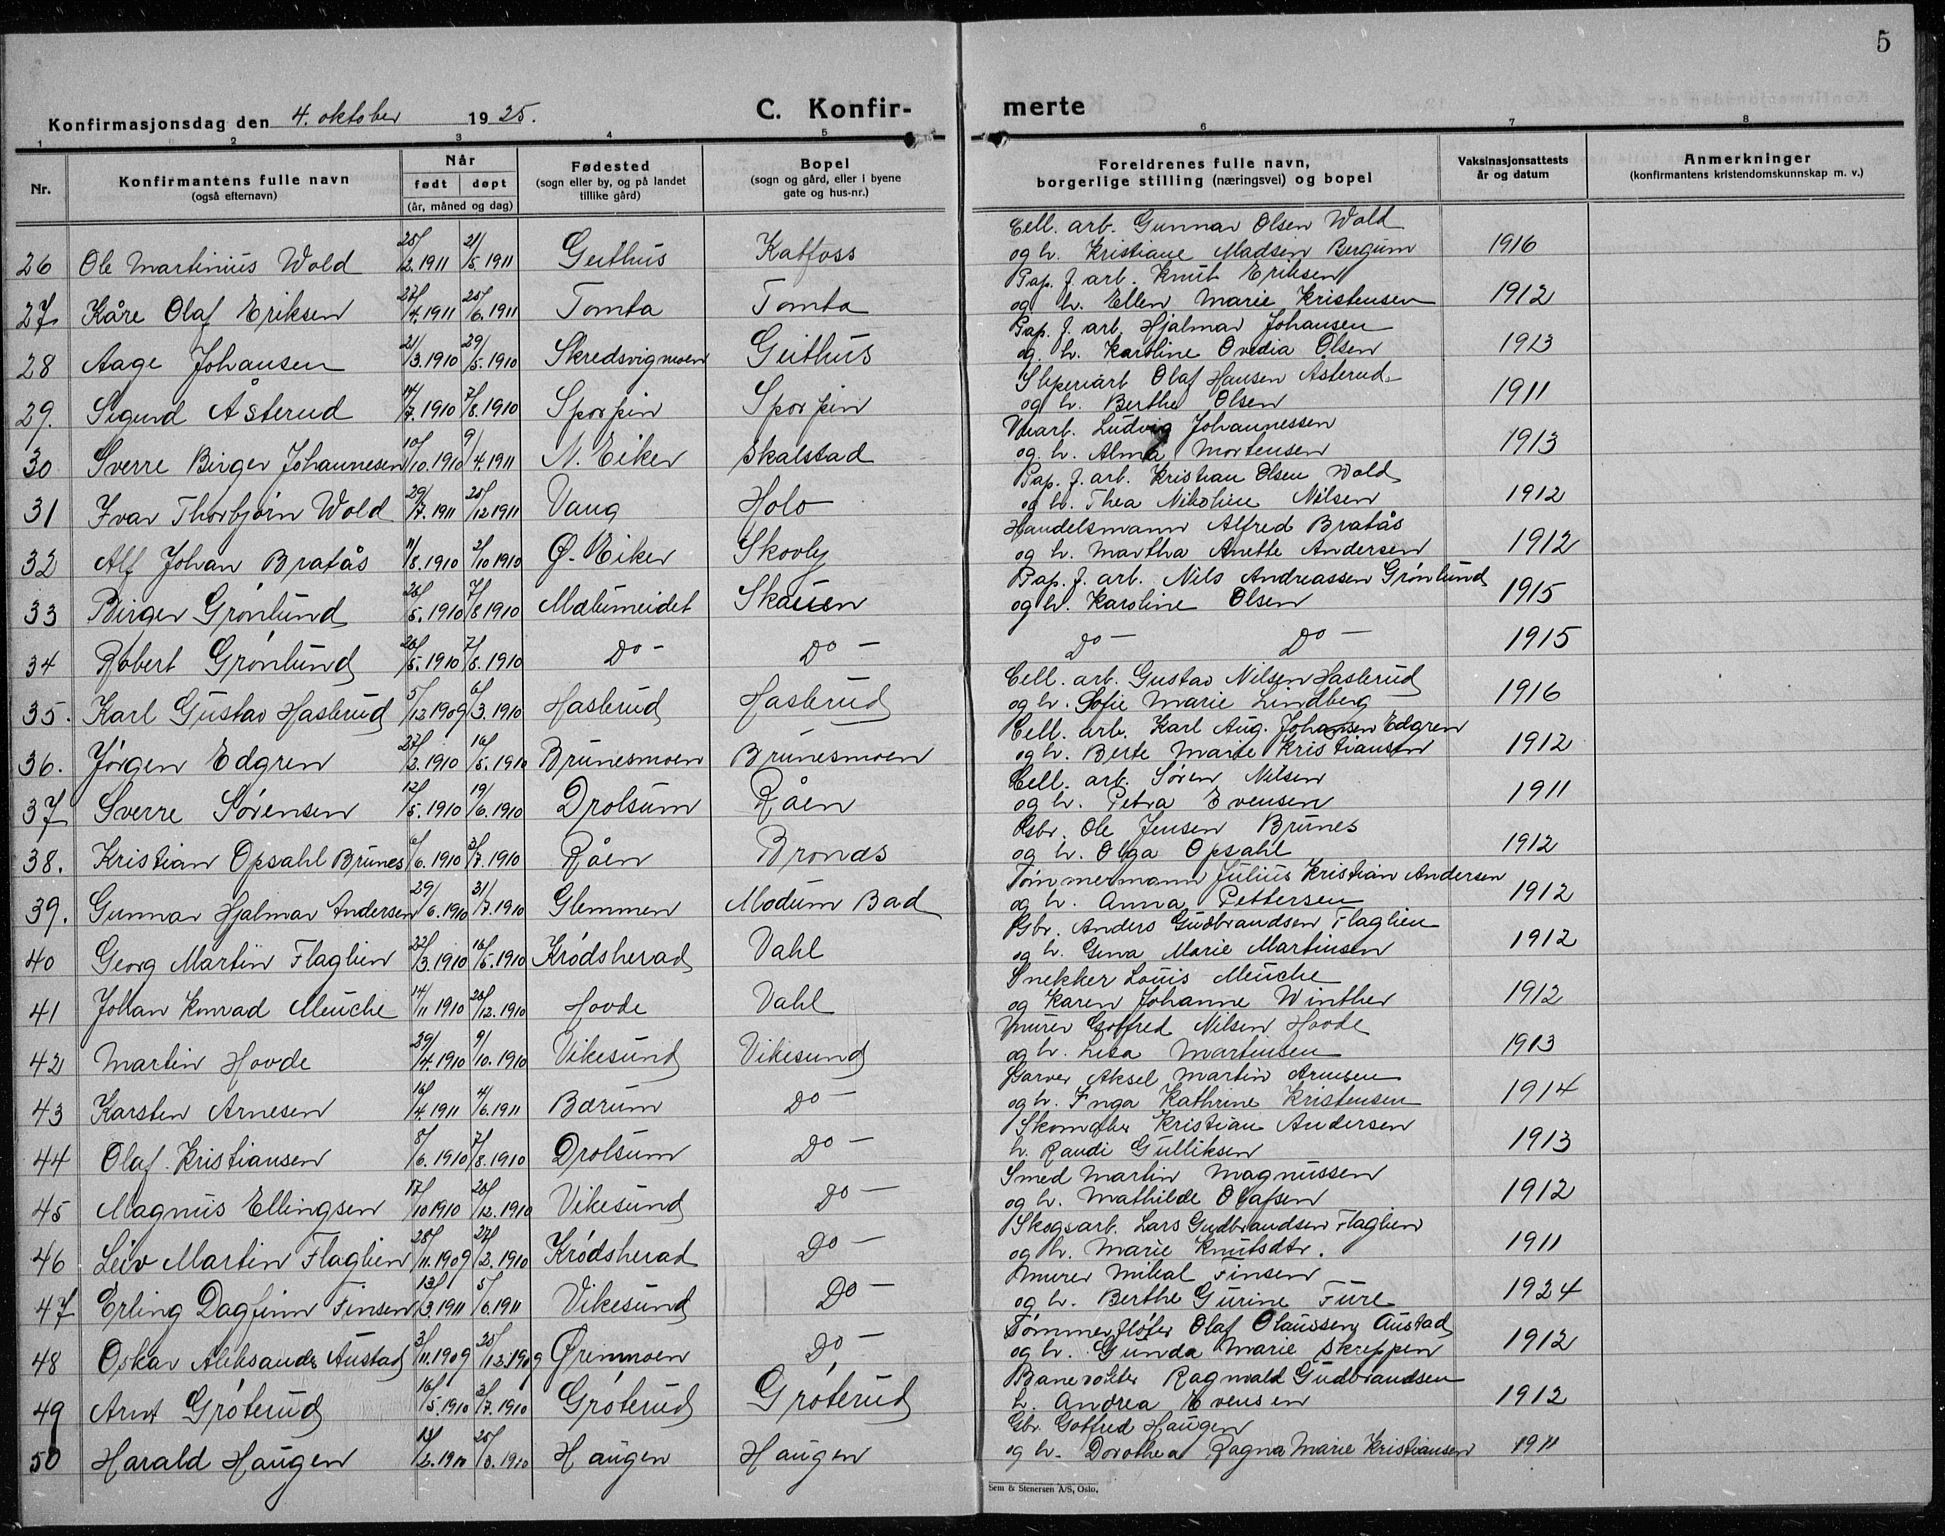 5
Konfirmasjonsdag den 4. oktober 1925.
C. Konfir- merte
1 2 3 4 5 6 7 8
Nr.
Konfirmantens fulle navn
(også efternavn)
Når
født døpt
(år, måned og dag)
Fødested
(sogn eller by, og på landet
tillike gård)
Bopel
(sogn og gård, eller i byene
gate og hus-nr.)
Foreldrenes fulle navn,
borgerlige stilling (næringsvei) og bopel
Vaksinasjonsattests
år og datum
Anmerkninger
(konfirmantens kristendomskunnskap m. v.)
Cell. arb. Gunnar Olsen Wold
26 Ole Martinius Wold 25/2.1911 21/5.1911 Geithus Katfoss og h. Kristiane Madsen Bergum 1916
Pap. f. arb. Knut Eriksen
27 Kåre Olaf Eriksen 27/4.1911 25/6.1911 Tomta Tomta og h. Ellen Marie Kristensen 1912
Pap. f. arb. Hjalmar Johansen
28 Aage Johansen 21/3.1910 29/5.1910 Skredsvigmoen Geithus og h. Karoline Ovedia Olsen 1913
Sliperiarb Olaf Hansen Åsterud
29. Sigurd Åsterud 14/7.1910 7/8.1910 og h. Berthe Olsen 1911
Ludvig Johannessen
30 Sverre Birger Johannesen 10/10.1910 9/4.1911 N. Eiker Skalstad og h. Alma Mortensen 1913
Pap. f. arb. Kristian Olsen Wold
31 Ivar Thorbjørn Wold 29/7.1911 25/12 1911 Vang Holo og h. Thea Nikoline Nilsen 1912
Handelsmann Alfred Bratås
32 Alf Johan Bratås 11/8.1910 2/10 1910 Ø. Eiker Skovly og h. Martha Anette Andersen 1912
Pap. f. arb. Nils Andreassen Grønlund
33 Birger Grønlund 26/5.1910 7/8 1910 Skauen og h. Karoline Olsen 1915
34 Robert Grønlund 26/5.1910 7/8.1910 Do - Do - Do - Do - 1915
Cell. arb. Gustav Nilsen Haslerud
35. Karl Gustav Haslerud 5/12 1909 6/3.1910 Haslerud Haslerud og h. Sofie Marie Lindberg 1916
Cell. arb. Karl Aug. Johansen Edgren
36. Jørgen Edgren 27/2.1910 16/5.1910 Brunesmoen Brunesmoen og h. Berte Marie Kristiansen 1912
Cell. arb. Søren Nilsen
37 Sverre Sørensen 12/5.1910 19/6.1910 Drolsum Råen og h. Petra Evensen 1911
Ole Jensen Brunes
38. Kristian Opsahl Brunes 6/6.1910 3/7.1910 Råen og h. Olga Opsahl 1912
Tømmermann Julius Kristian Andersen
39. Gunnar Hjalmar Andersen 29/6.1910 31/7.1910 Glemmen Modum Bad og h. Anna Pettersen 1912
Gbr. Anders Gudbrandsen Flaglien
40 Georg Martin Flaglien 22/3.1910 16/5.1910 Krødsherad Vahl og h. Gena Marie Martinsen 1912
Snekker Louis Meuche
41 Johan Konrad Meuche 14/11 1910 26/12.1910 Hovde Vahl og Karen Johanne Winther 1912
Murer Gotfred Nilsen Hovde
42 Martin Hovde 29/4.1910 9/10.1910 Vikesund Vikesund og h. Lisa Martinsen 1913
Garver Aksel Martin Arnesen
43 Karsten Arnesen 16/4.1911 4/6.1911 Bærum Do - og h. Inga Kathrine Kristensen 1914
Skomaker Kristian Andersen
44 Olaf Kristiansen 8/6.1910 7/8.1910 Drolsum Do - h. Randi Gulliksen 1913
Smed Martin Magnussen
45 Magnus Ellingsen 17/10 1910 26/12.1910 Vikesund Do - og h. Mathilde Olafsen 1912
Skogsarb. Lars Gudbrandsen Flaglien
46 Leiv Martin Flaglien 28/11.1909 27/2.1910 Krødsherad Do - og h. Marie Knutsdtr. 1911
Murer Mikal Finsen
47 Erling Dagfinn Finsen 13/3.1911 5/6.1911 Vikesund Do - og h. Berthe Gurine Fure 1924
Tømmerfløter Olaf Olaussen Austad
48 Oskar Aleksander Austad 3/11.1909 26/12.1909 Ørenmoen Do - og h. Gunda Marie Skreppen 1912
Banevokter Ragnvald Gudbrandsen
49 Arnt Grøterud 16/5.1910 3/7.1910 Grøterud Grøterud h. Andrea Evensen 1912
Gbr. Gotfred Haugen
50 Harald Haugen 13/2.1910 Haugen Haugen og h. Dorothea Ragna Marie Kristiansen 1911
Sem & Stenersen A/S, Oslo.